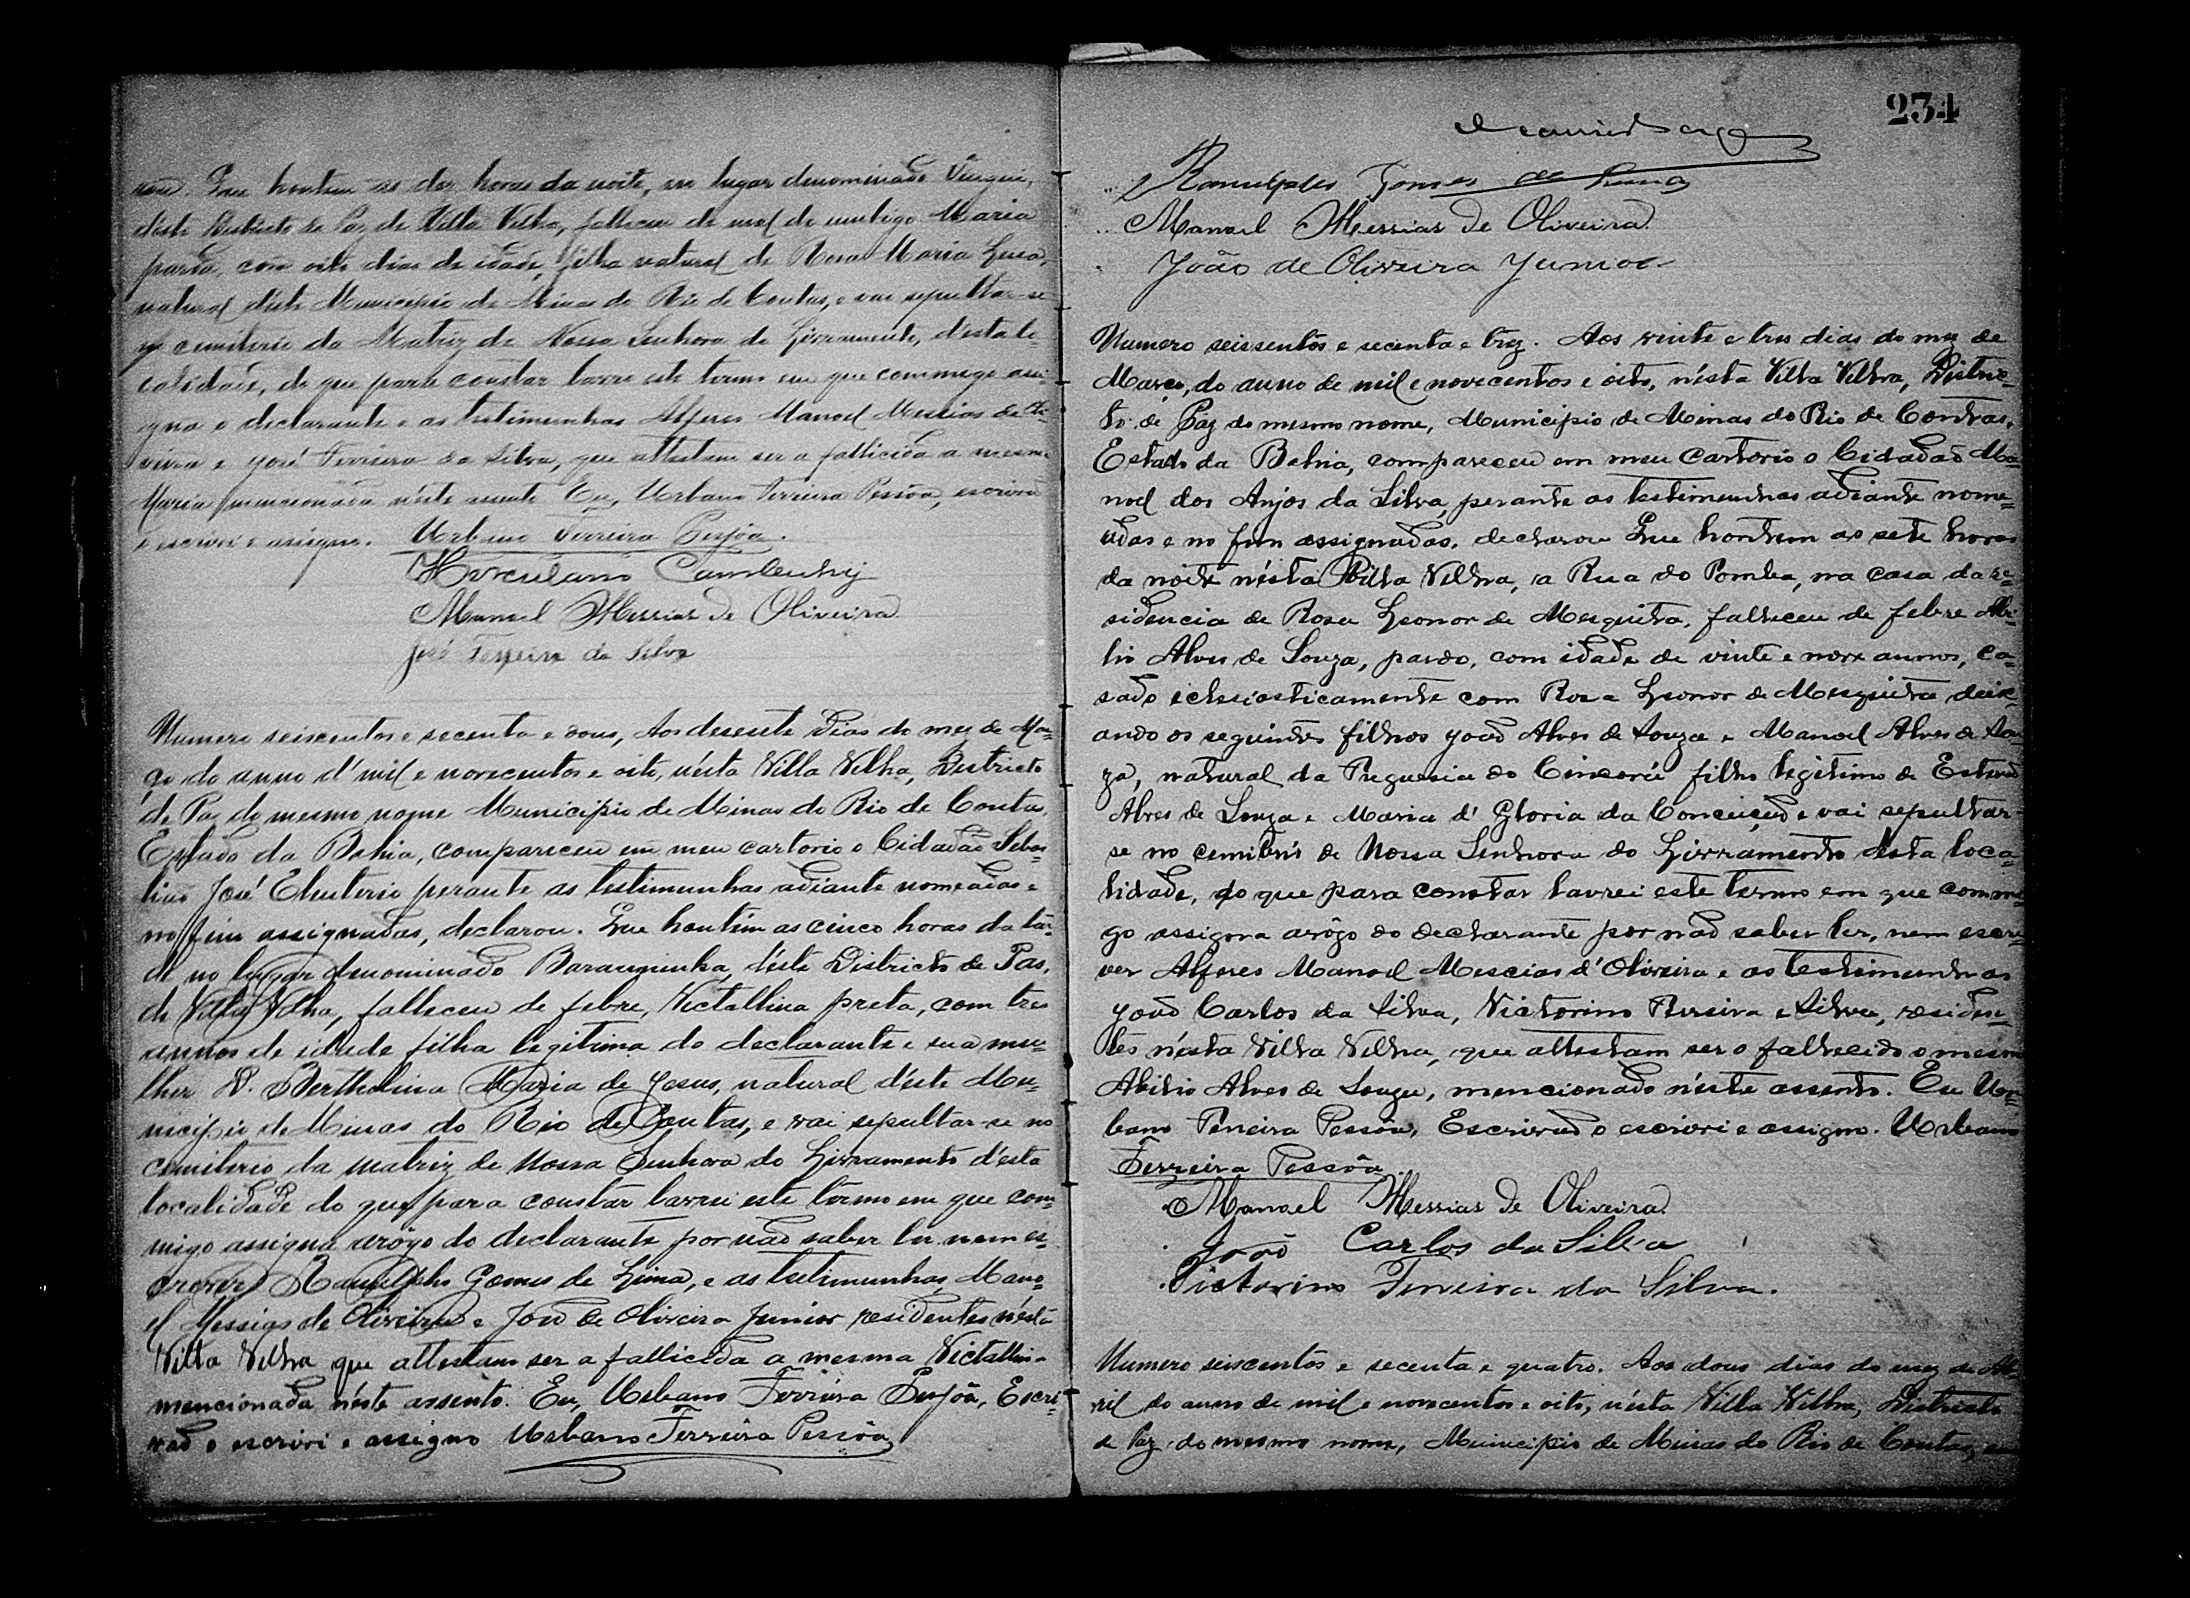 Que hontem as dez horas da noite, no lugar denominado
deste Districto de Paz de Villa Velha, falleceu de mal de umbigo Maria
parda, com oito dias de idade, filha natural de Rosa Maria
natural deste Municipio de Minas do Rio de Contas, e vae sepultar-se
no cemiterio da Matriz de Nossa Senhora do Livramento, desta lo-
calidade, do que para constar lavrei este termo em que commigo assi-
gna o declarante e as testimunhas Alferes Manoel Messias de Oli-
veira e José Ferreira da Silva, que attestam ser a fallicida a mesma
Maria mencionada néste assento Eu, Urbano Ferreira Pessôa, escrivão
o escrevi e assigno. Urbano Ferreira Pessôa.
Herculano
Manoel Messias de Oliveira
José Ferreira da Silva
Numero seiscentos e secenta e dous, Aos desesete dias do mez de Ma-
ço do anno d'mil e novecentos e oito, nésta Villa Velha, Districto
de Paz do mesmo nome Municipio de Minas do Rio de Contas
Estado da Bahia, compareceu em meu cartorio o Cidadão
José Eleuterio perante as testimunhas adiante nomeadas e
no fim assignadas, declarou. Que hontem as cinco horas da tar-
de no lugar denominado Barauninha, déste Districto de Pas,
de Villa Velha, falleceu de febre, Victallina preta, com tres
annos de idade filha legitima do declarante e sua mu-
lher D. Bertholina Maria de Jesus, natural déste Mu-
nicipio de Minas do Rio de Contas, e vai sepultar-se no
cemiterio da matriz de Nossa Senhora do Livramento d'esta
localidade do que para constar lavrei este termo em que com-
migo assigna arôgo do declarante por não saber ler nem es-
crever Ranulpho Gomes de Lima, e as testimunhas, Mano-
el Messias de Oliveira e João de Oliveira Junior residentes nésta
Villa Velha que attestam ser a fallicida a mesma Victallina
mencionada néste assento. Eu, Urbano Ferreira Pessôa, Escri-
vão o escrevi e assigno Urbano Ferreira Pessôa
234
Ranulpho Gomes de Lima
Manoel Messias de Oliveira
João de Oliveira Junior
Numero seissentos e secenta e trez. Aos vinte e tres dias do mez de
Março, do anno de mil e novecentos e oito, nésta Villa Velha, Distric-
to de Paz do mesmo nome, Municipio de Minas do Rio de Contas,
Estado da Bahia, compareceu em meu Cartorio o Cidadão Ma-
noel dos Anjos da Silva, perante as testimunhas adiante nome-
adas e no fim assignadas, declarou Que hontem as sete horas
da noite nésta Villa Velha, a Rua do Pomba, na casa da re-
sidencia de Rosa Leonor de Mesquita, falleceu de febre Abi-
lio Alves de Souza, pardo, com idade de vinte e nove annos, ca-
sado eclesiasticamente com Rosa Leonor de Mesquita deix-
ando os seguintes filhos João Alves de Souza e Manoel Alves de Sou-
za, natural da Freguesia do Sincorá filho legitimo de Estevão
Alves de Souza e Maria d' Gloria da Conceição e vai sepultar-
se no cemiterio de Nossa Senhora do Livramento desta loca-
lidade, do que para constar lavrei este termo em que comme-
go assigna arôgo do declarante por não saber ler, nem escre-
ver Alferes Manoel Mescias d'Oliveira e as testimunhas
João Carlos da Silva, Victorino Ferreira e Silva, residen-
tes nésta Villa Velha, que attestam ser o fallecido o mesmo
Abilio Alves de Souza, mencionado néste assento. Eu Ur-
bano Ferreira Pessôa, Escrivão o escrevi e assigno. Urbano
Ferreira Pessôa
Manoel Messias de Oliveira
João Carlos da Silva
Victorino Ferreira da Silva.
Numero seiscentos e secenta e quatro. Aos dous dias do mez de Ab-
ril do anno de mil e novecentos e oito, nésta Villa Velha, Districto
de Paz do mesmo nome, Municipio de Minas do Rio de Contas,